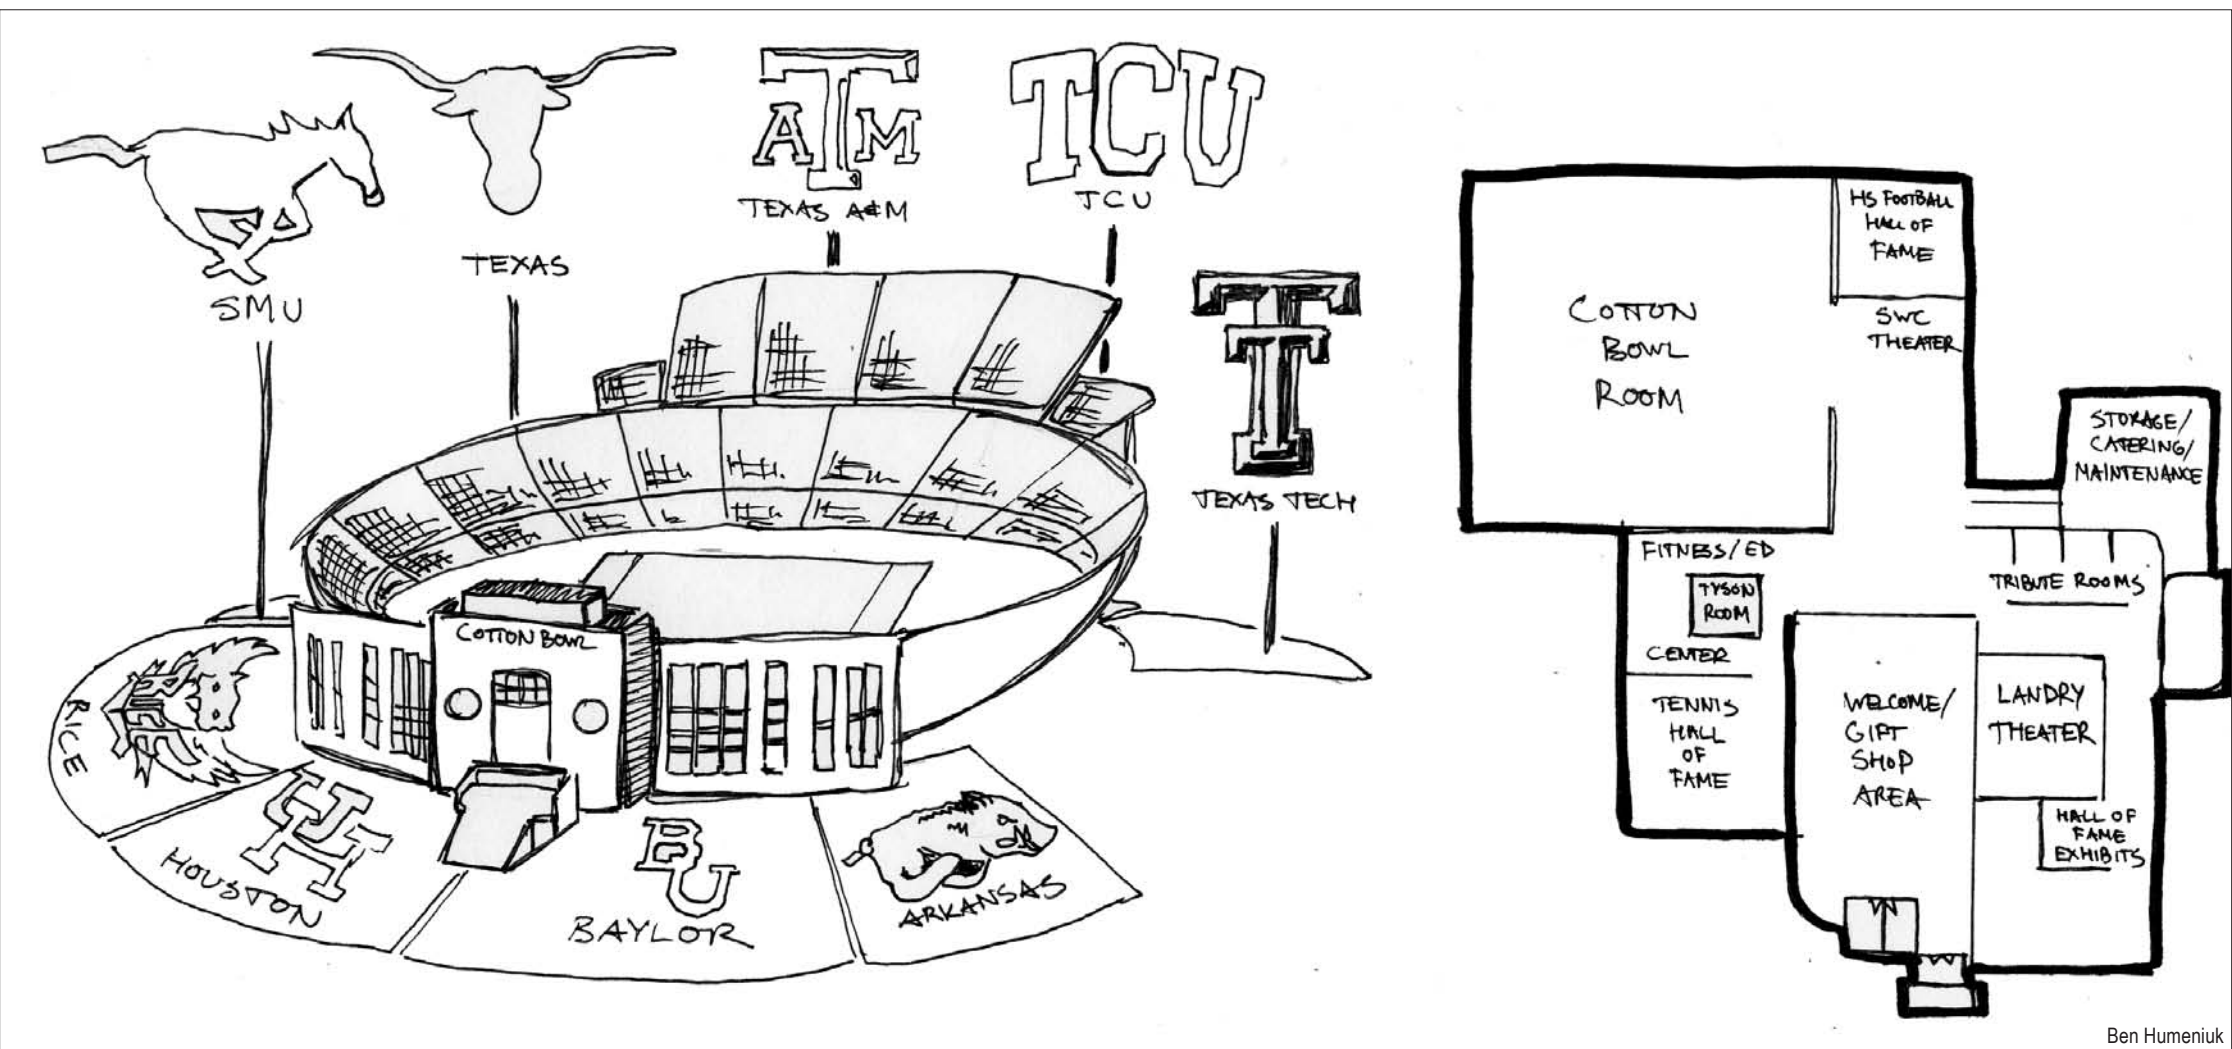 SMU
TEXAS
A T M
TEXAS A&M
TCU
TCU
TT
TEXAS TECH
COTTON BOWL
RICE
RICE
UH
HOUSTON
BU
BAYLOR
ARKANSAS
COTTON
BOWL
ROOM
HS FOOTBALL
HALL OF
FAME
SWC
THEATER
STORAGE/
CATERING/
MAINTENANCE
FITNESS/ED
TYSON
ROOM
CENTER
TRIBUTE ROOMS
TENNIS
HALL
OF
FAME
WELCOME/
GIFT
SHOP
AREA
LANDRY
THEATER
HALL OF
FAME
EXHIBITS
Ben Humeniuk